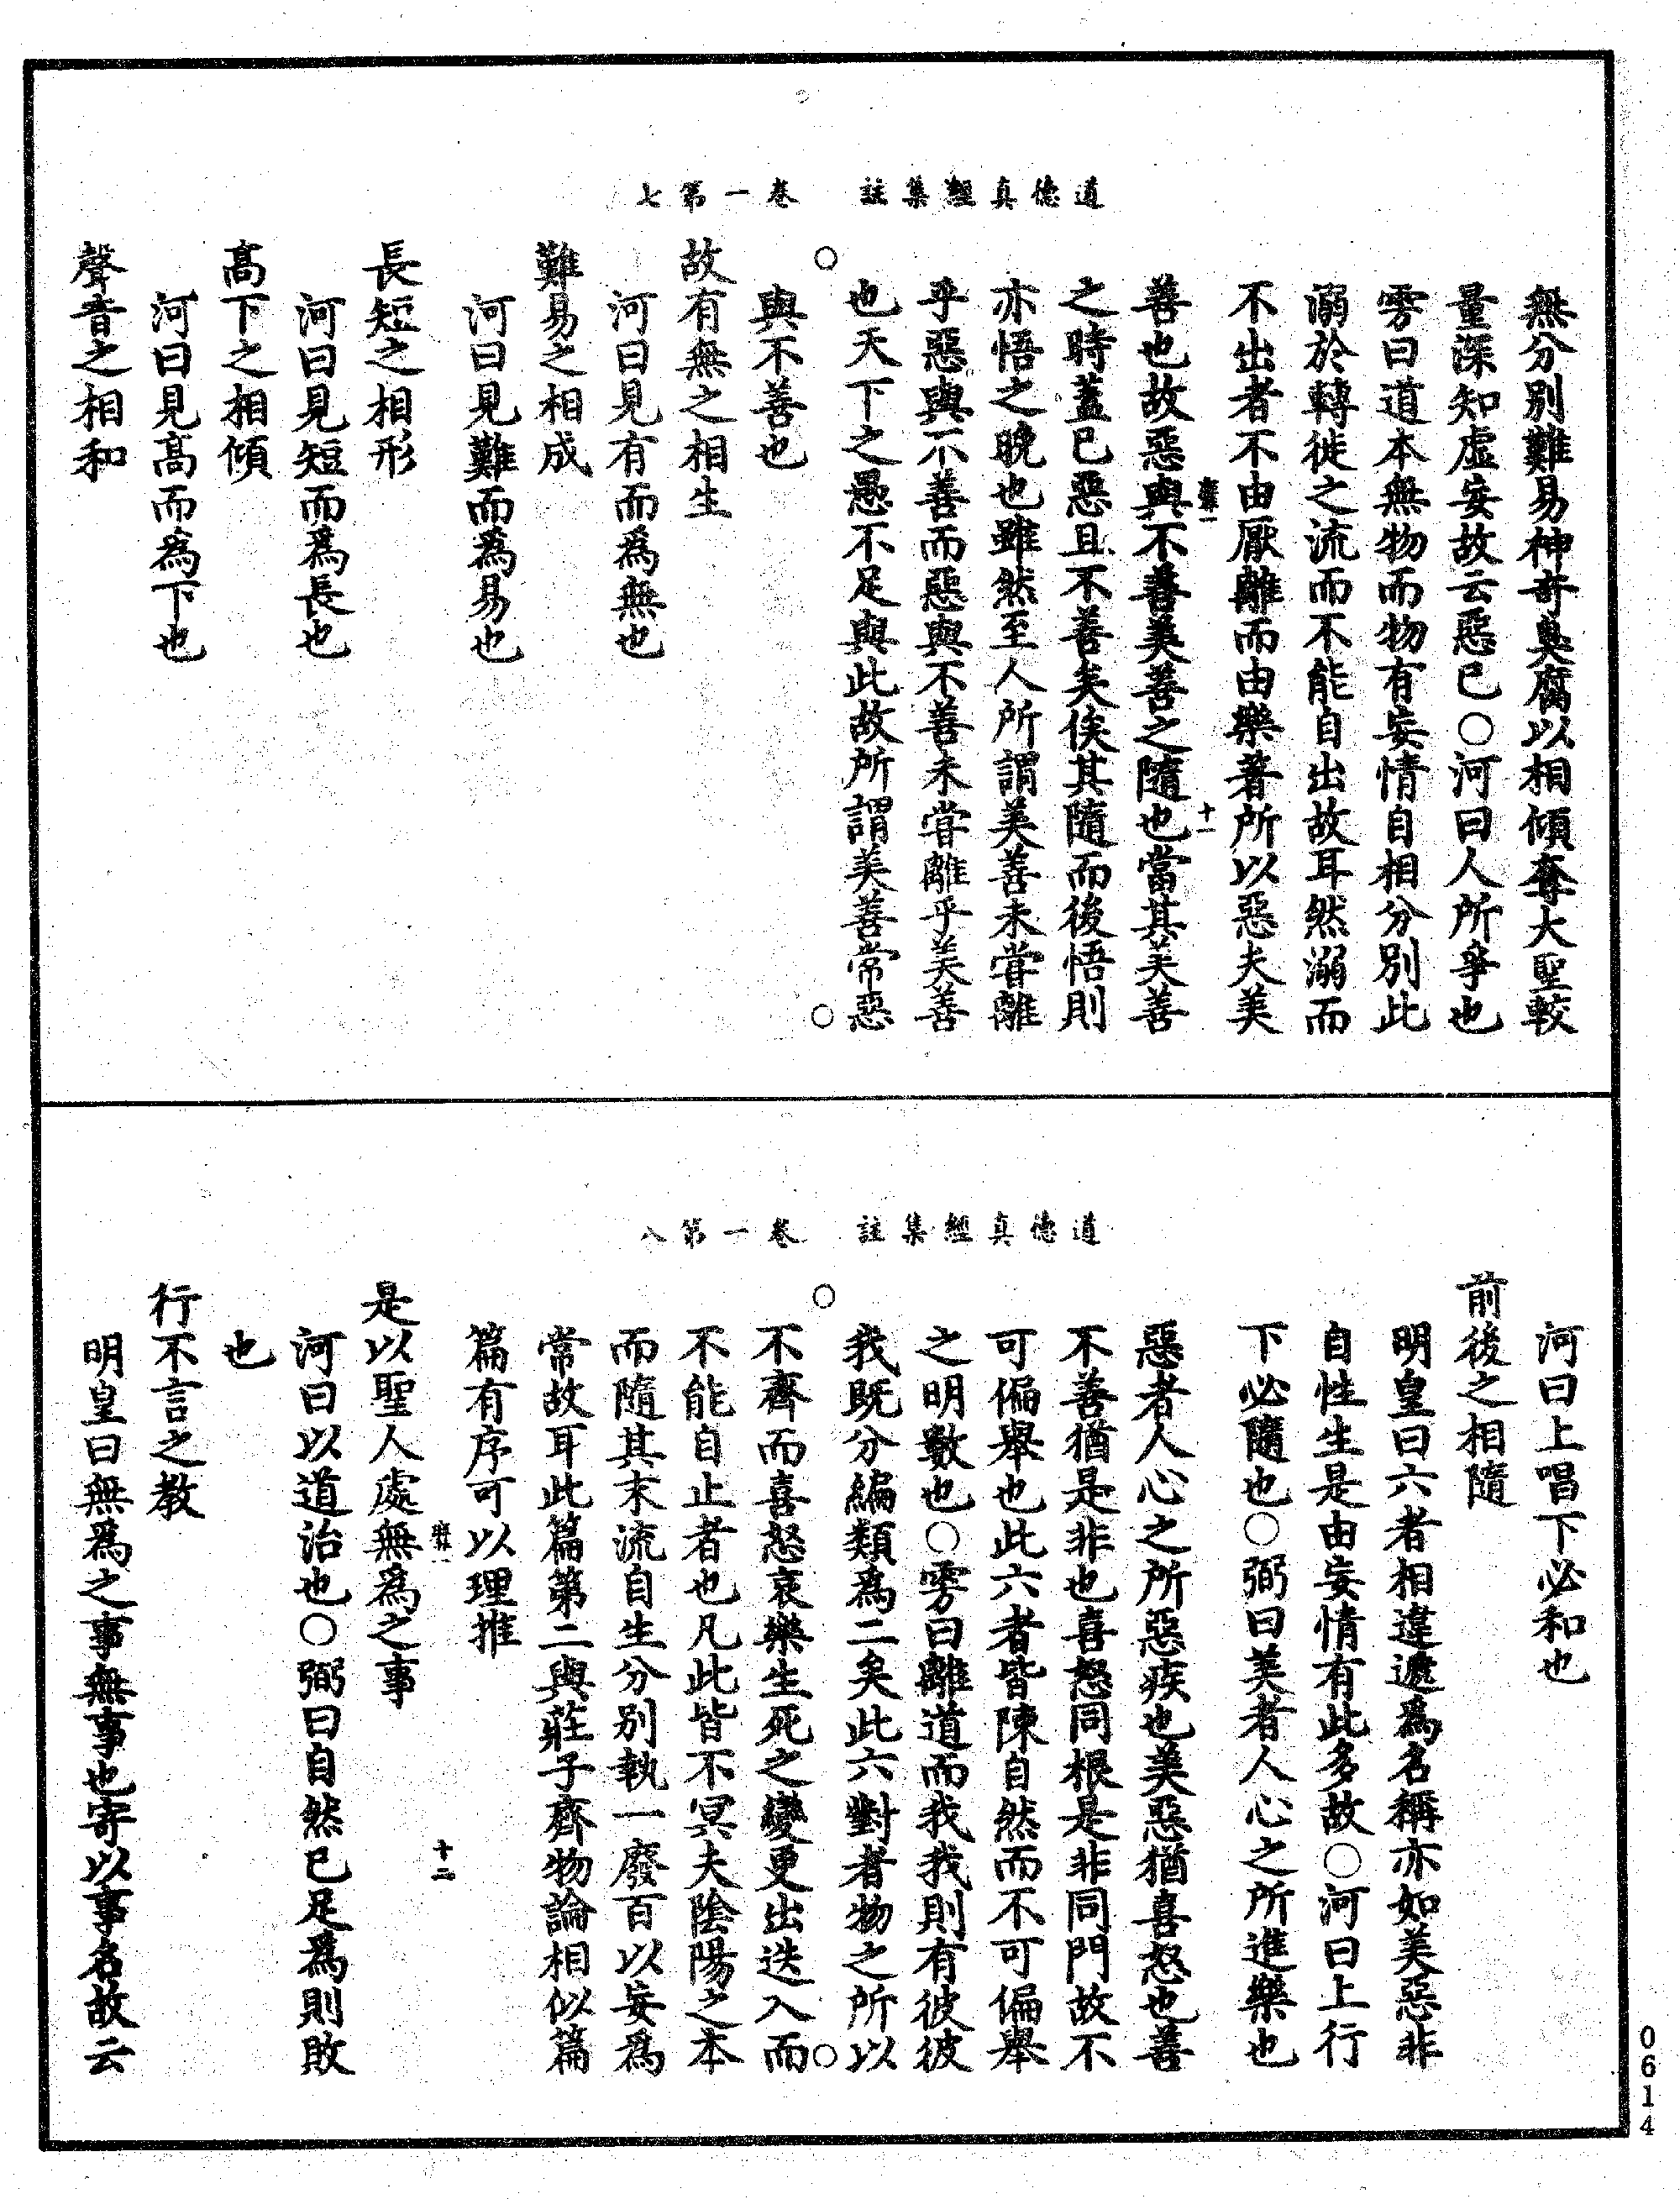 道德真經集註　卷一第七
無分別難易神奇臭腐以相傾奪大聖較
量深知虛妄故云惡已○河曰人所爭也
雱曰道本無物而物有妄情自相分別此
溺於轉徙之流而不能自出故耳然溺而
不出者不由厭離而由樂著所以惡夫美
善也故惡與不善美善之隨也當其美善
十一
之時蓋已惡且不善矣俟其隨而後悟則
亦悟之晚也雖然至人所謂美善未嘗離
乎惡與不善而惡與不善未嘗離乎美善
也天下之愚不足與此故所謂美善常惡
○　○
與不善也
故有無之相生
河曰見有而為無也
難易之相成
河曰見難而為易也
長短之相形
河曰見短而為長也
高下之相傾
河曰見高而為下也
聲音之相和
道德真經集註　卷一第八
河曰上唱下必和也
前後之相隨
明皇曰六者相違遞為名稱亦如美惡非
自性生是由妄情有此多故○河曰上行
下必隨也○弼曰美者人心之所進樂也
惡者人心之所惡疾也美惡猶喜怒也善
不善猶是非也喜怒同根是非同門故不
可偏舉也此六者皆陳自然而不可偏舉
之明數也○雱曰離道而我我則有彼彼
我既分編類為二矣此六對者物之所以
○　○
不齊而喜怒哀樂生死之變更出迭入而
不能自止者也凡此皆不冥夫陰陽之本
而隨其末流自生分別執一廢百以妄為
常故耳此篇第二與莊子齊物論相似篇
篇有序可以理推
十二
是以聖人處無為之事
河曰以道治也○弼曰自然已足為則敗
也
行不言之教
明皇曰無為之事無事也寄以事名故云
0614